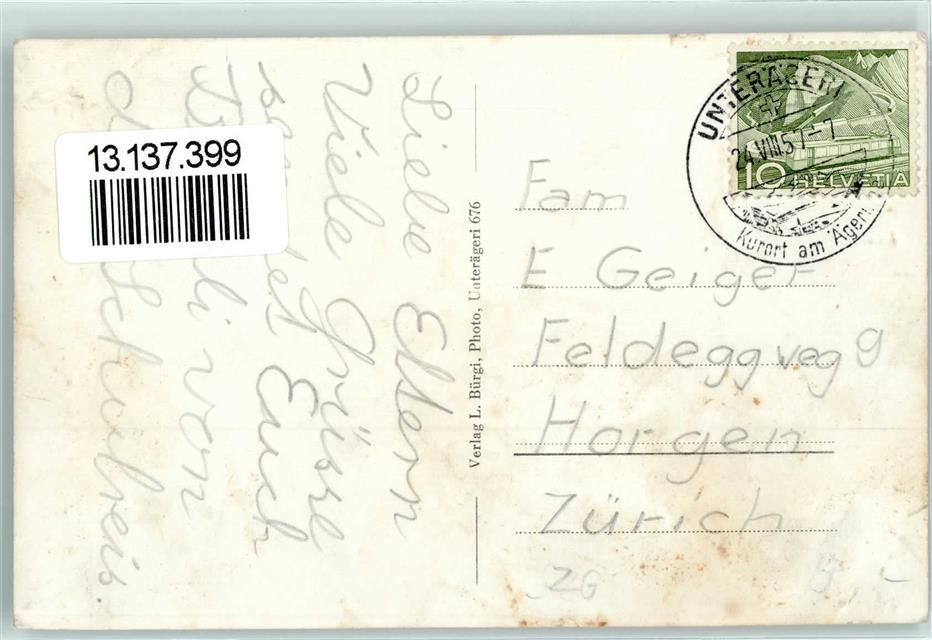 13.137.399
Liebe Eltern
Viele Grüsse
sendet Euch
von
der Schulreis.
Verlag L. Bürgi, Photo, Unterägeri 676
UNTERÄGERI
24.VIII.57-7
Kurort am Ägeri
10 HELVETIA
Fam
E Geiger
Feldeggweg 9
Horgen
Zürich
ZG